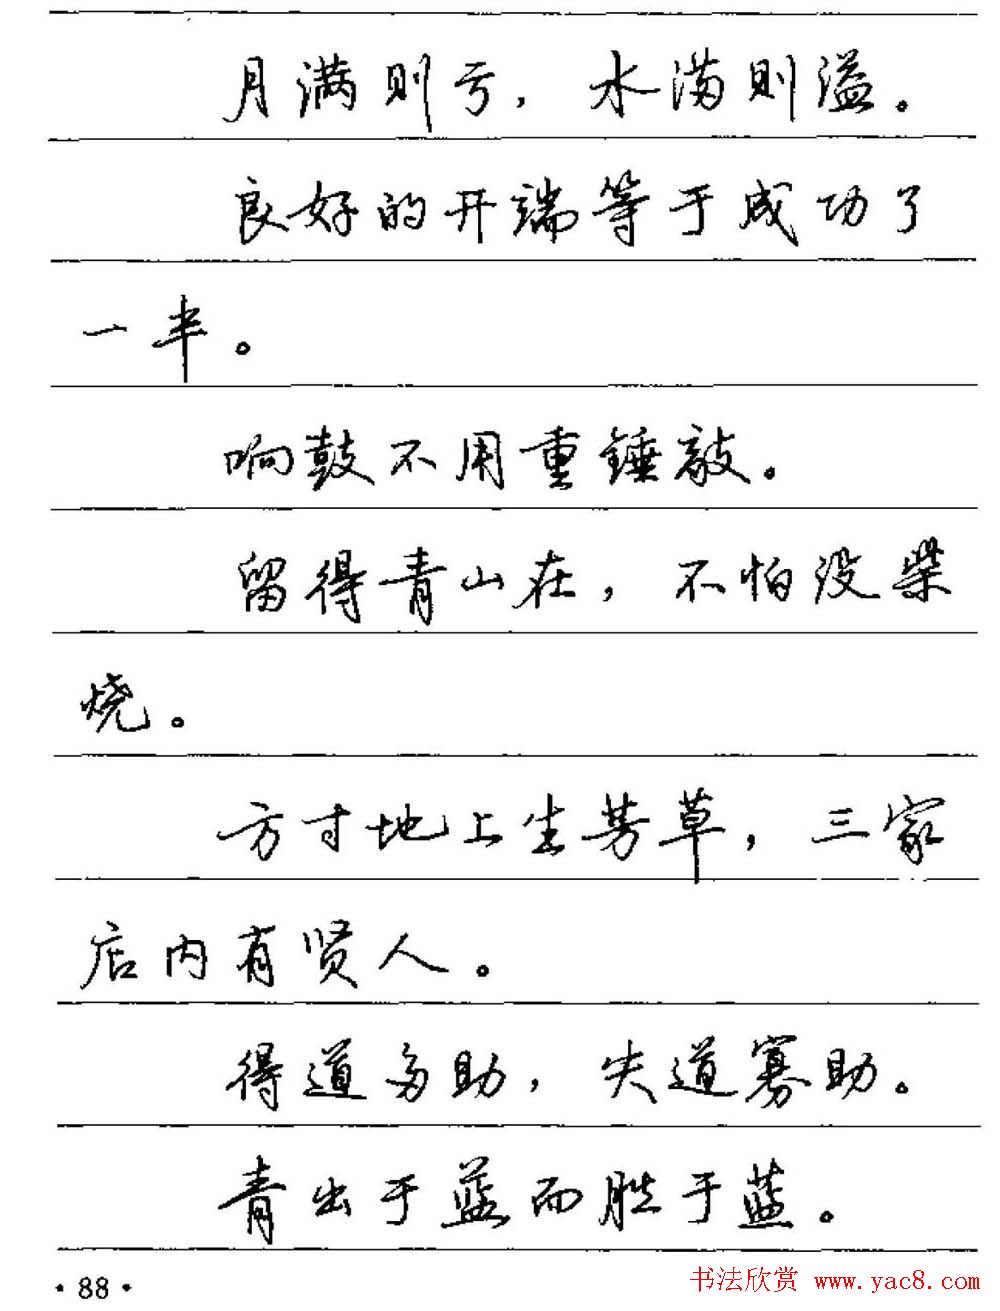 月满则亏，水满则溢。
良好的开端等于成功了
一半。
响鼓不用重锤敲。
留得青山在，不怕没柴
烧。
方寸地上生芳草，三家
店内有贤人。
得道多助，失道寡助。
青出于蓝而胜于蓝。
·88·
书法欣赏 www.yac8.com